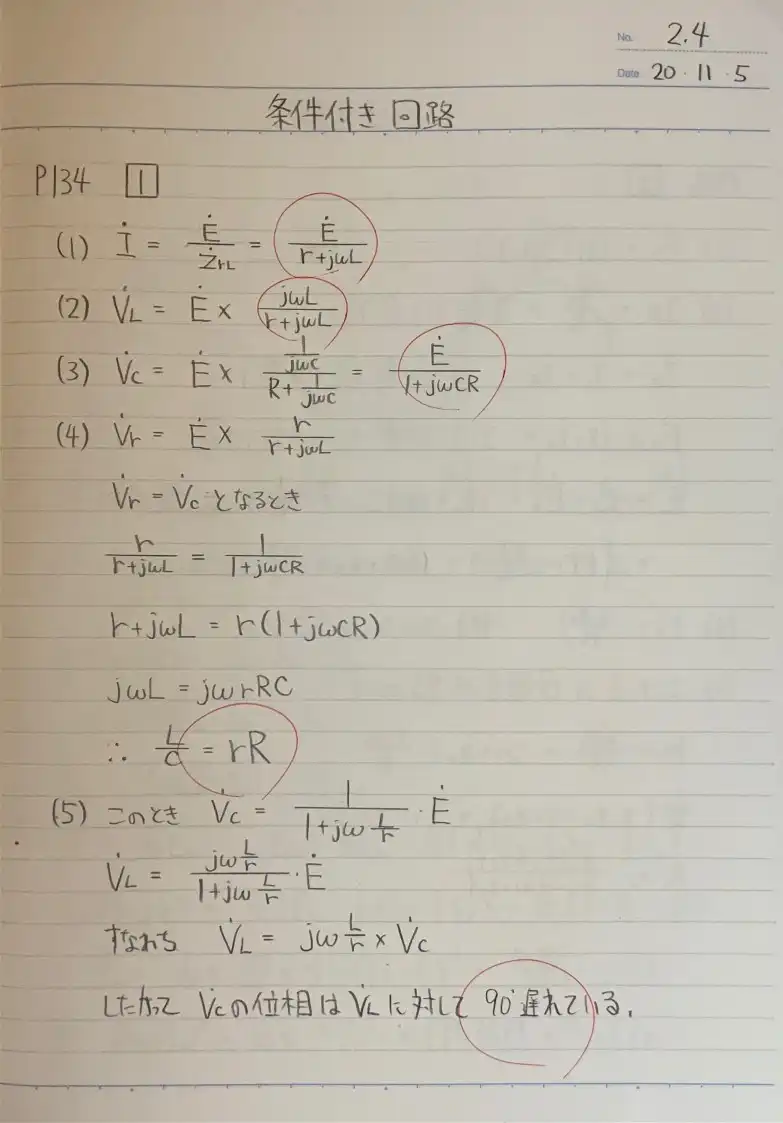 No. 2.4
Date 20・11・5
条件付き回路
P134 1
(1) İ = Ė/Ż_rL = Ė/(r+jωL)
(2) V̇_L = Ė × jωL/(r+jωL)
(3) V̇_C = Ė × (1/jωC)/(R + 1/jωC) = Ė/(1+jωCR)
(4) V̇_r = Ė × r/(r+jωL)
V̇_r = V̇_C となるとき
r/(r+jωL) = 1/(1+jωCR)
r+jωL = r(1+jωCR)
jωL = jωrRC
∴ L/C = rR
(5) このとき V̇_C = 1/(1+jω L/r)・Ė
V̇_L = (jω L/r)/(1+jω L/r)・Ė
すなわち V̇_L = jω L/r × V̇_C
したがって V̇_Cの位相は V̇_Lに対して 90°遅れている.